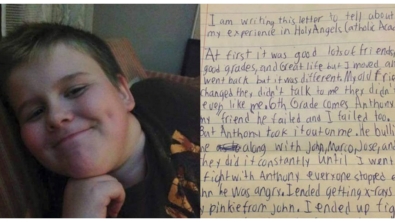 I am writing this letter to tell about
my experience in Holy Angels Catholic Aca
At first it was good lots of friends
good grades, and Great life but I moved, a
went back but it was different. My old frie
changed they didn't talk to me they didn
even like me. 6th Grade comes Anthony
my friend he failed and I failed too.
But Anthony took it out on me. He bulli
me along with John, Marco, Jose, and
they did it constantly until I went
fight with Anthony everyone stopped e
hn he was angry. I ended getting x-rays
y pinkie from John. I ended up fig